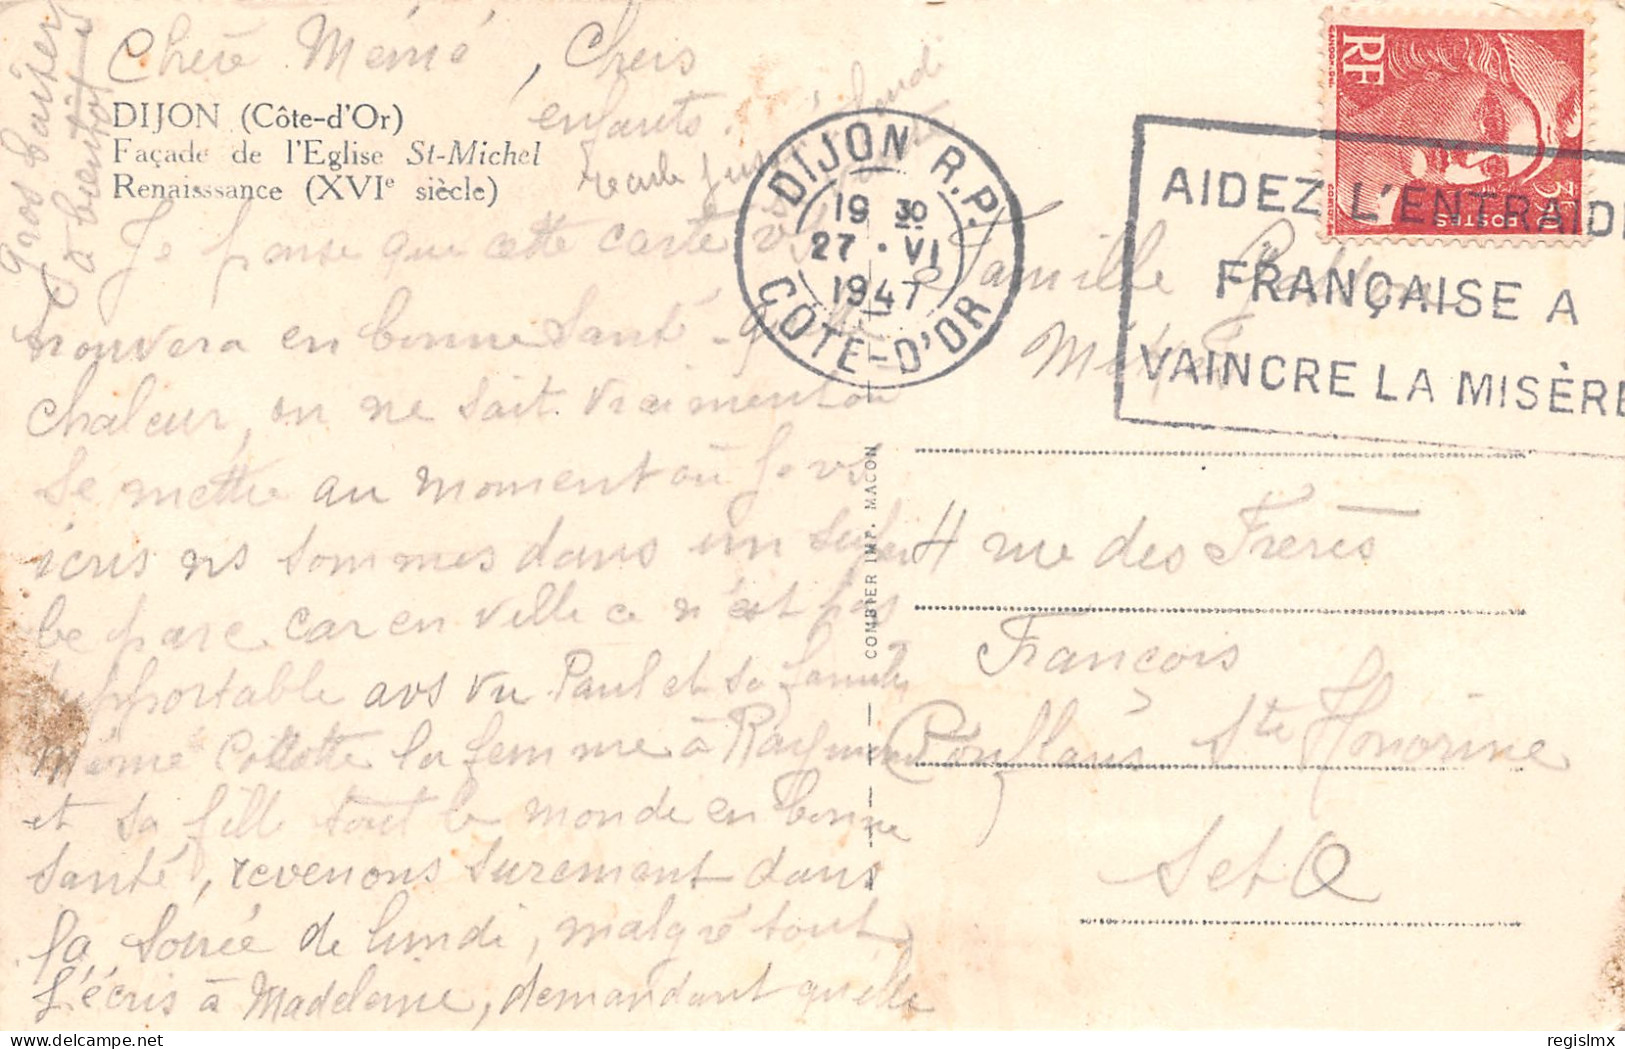 Chère Mémé, Chers
enfants.
DIJON (Côte-d'Or)
Façade de l'Eglise St-Michel
Renaisssance (XVIe siècle)
Je pense que cette carte vs
trouvera en bonne santé -
chaleur, on ne sait vraiment où
se mettre au moment où je vs
écris ns sommes dans un super
be parc car en ville ce n'est pas
supportable avs vu Paul et sa famille
Mémé Collotte la femme à Raymond
et sa fille tout le monde en bonne
santé, revenons surement dans
la soirée de lundi, malgré tout
j'écris à Madeleine, demandant qu'elle
reste jusqu'à lundi
Gros baiser
à bientôt
DIJON R.P.
19 30
27 · VI
1947
COTE-D'OR
AIDEZ L'ENTRAIDE
FRANÇAISE A
VAINCRE LA MISÈRE
RF
POSTES
COMBIER IMP. MACON
Famille
4 rue des Frères
François
Conflans Ste Honorine
S et O
regislmx